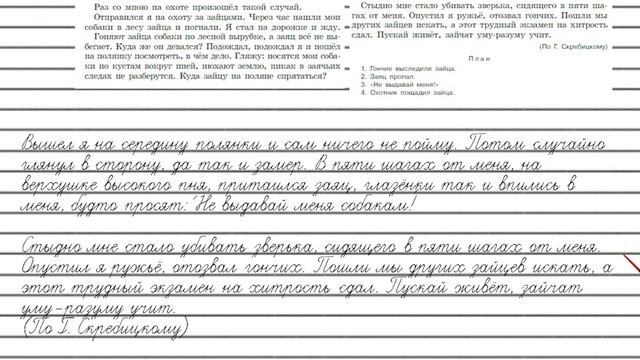 Раз со мною на охоте произошёл такой случай.
Отправился я на охоту за зайцами. Через час нашли мои
собаки в лесу зайца и погнали. Я стал на дорожке и жду.
Гоняют зайца собаки по лесной вырубке, а заяц всё не вы-
бегает. Куда же он девался? Подождал, подождал я и пошёл
на полянку посмотреть, в чём дело. Гляжу: носятся мои соба-
ки по кустам вокруг пней, нюхают землю, никак в заячьих
следах не разберутся. Куда зайцу на поляне спрятаться?
Стыдно мне стало убивать зверька, сидящего в пяти ша-
гах от меня. Опустил я ружьё, отозвал гончих. Пошли мы
других зайцев искать, а этот трудный экзамен на хитрость
сдал. Пускай живёт, зайчат уму-разуму учит.
(По Г. Скребицкому)
План
1. Гончие выследили зайца.
2. Заяц пропал.
3. «Не выдавай меня!»
4. Охотник пощадил зайца.
Вышел я на середину полянки и сам ничего не пойму. Потом случайно
глянул в сторону, да так и замер. В пяти шагах от меня, на
верхушке высокого пня, притаился заяц, глазёнки так и впились в
меня, будто просят: "Не выдавай меня собакам!
Стыдно мне стало убивать зверька, сидящего в пяти шагах от меня.
Опустил я ружьё, отозвал гончих. Пошли мы других зайцев искать, а
этот трудный экзамен на хитрость сдал. Пускай живёт, зайчат
уму-разуму учит.
(По Г. Скребицкому)